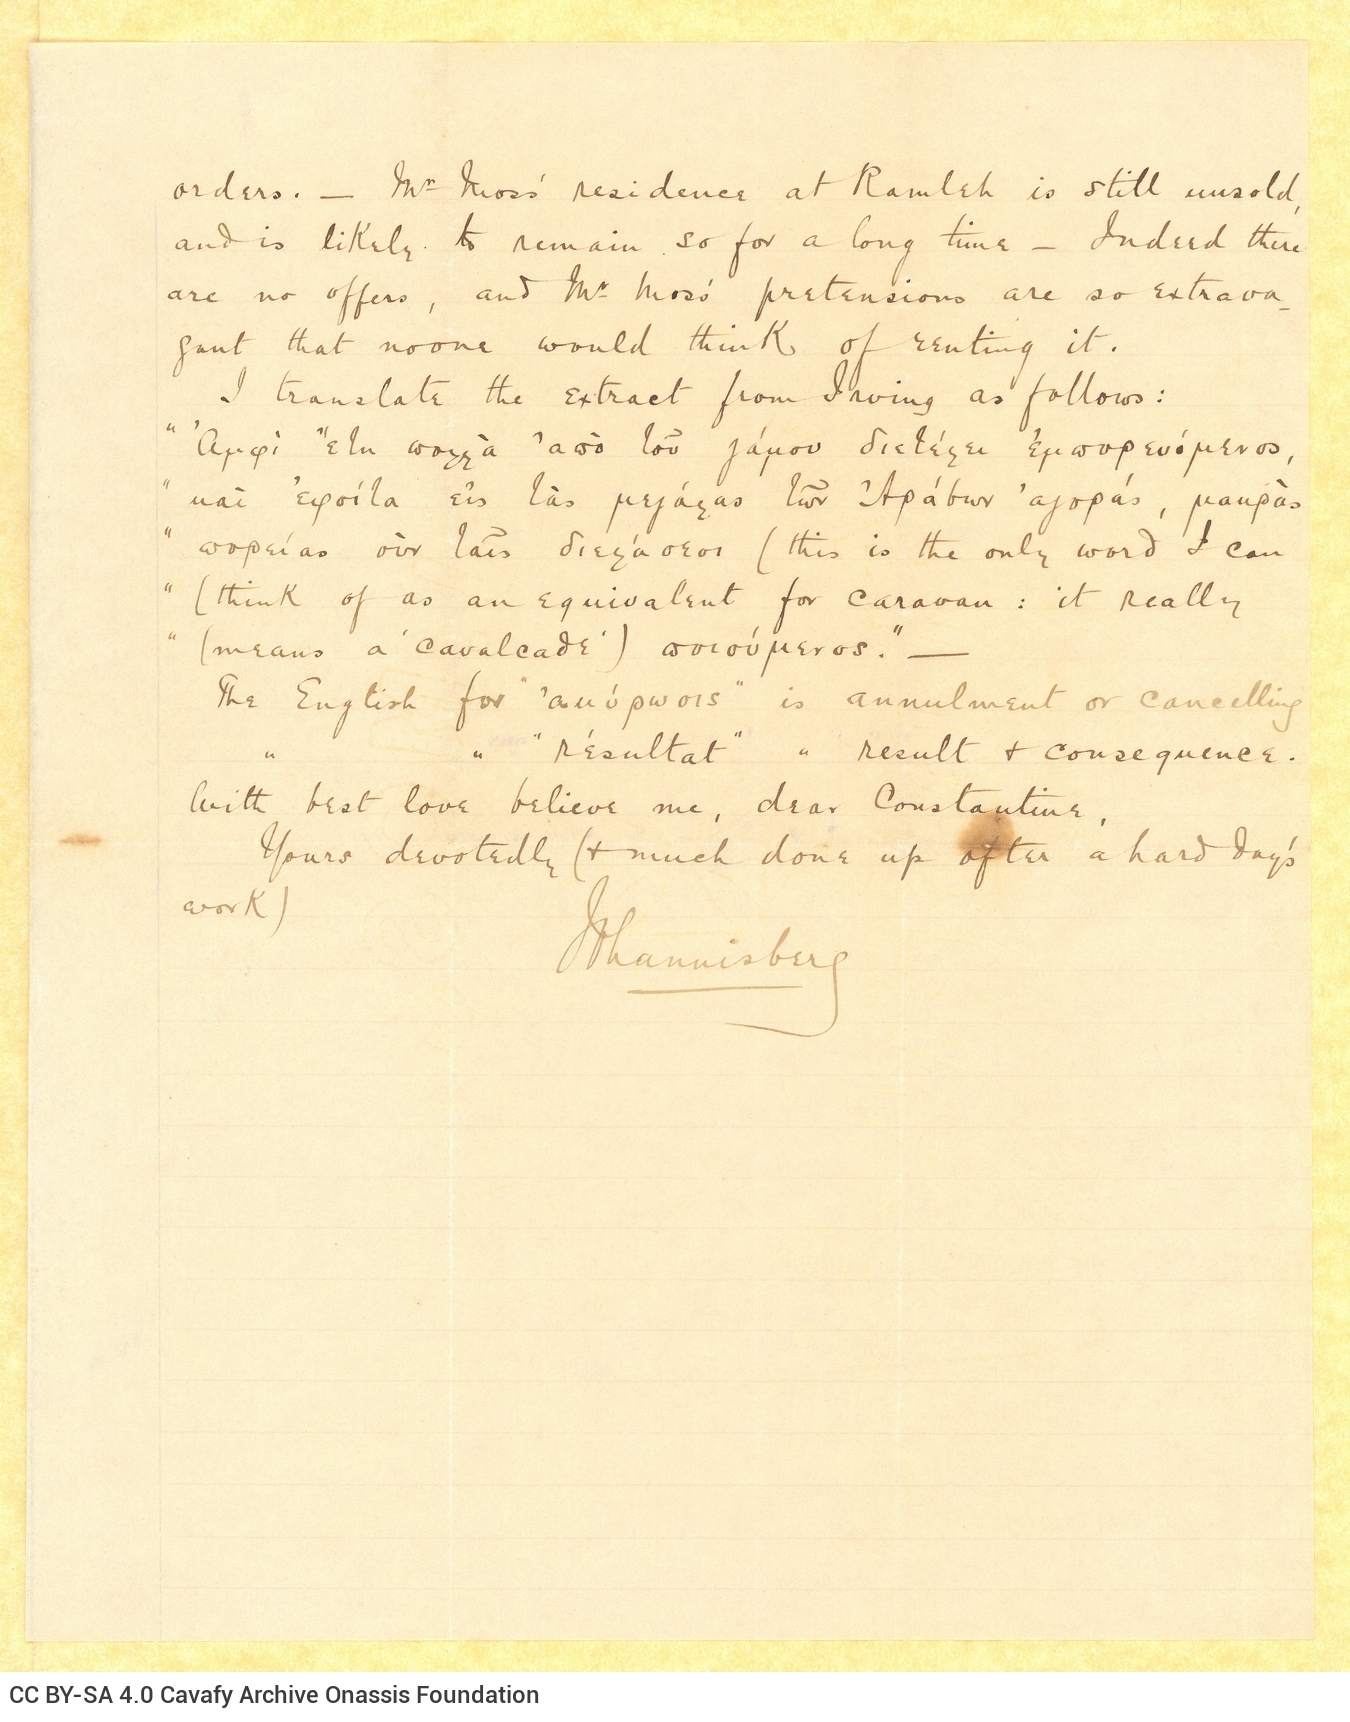 orders. — Mr Moss' residence at Ramleh is still unsold,
and is likely to remain so for a long time — Indeed there
are no offers, and Mr Moss' pretensions are so extrava-
gant that noone would think of renting it.
I translate the extract from Irving as follows:
" Ἀμφὶ ἔτη πολλὰ ἀπὸ τοῦ γάμου διετέλει ἐμπορευόμενος,
" καὶ ἐφοίτα εἰς τὰς μεγάλας τῶν Ἀράβων ἀγοράς, μακρὰς
" πορείας σὺν ταῖς διελάσεσι (this is the only word I can
" (think of as an equivalent for caravan: it really
" (means a 'cavalcade') ποιούμενος." —
The English for "ἀκύρωσις" is annulment or cancelling
" " "résultat" " result & consequence.
With best love believe me, dear Constantine,
Yours devotedly (& much done up after a hard day's
work)
Johannisberg
CC BY-SA 4.0 Cavafy Archive Onassis Foundation